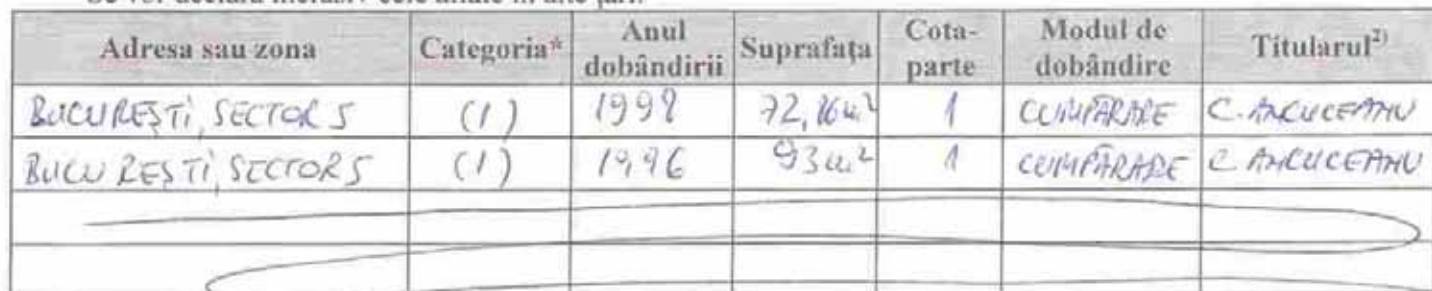 Se vor declara inclusiv cele aflate în alte țări.
Adresa sau zona | Categoria* | Anul dobândirii | Suprafața | Cota-parte | Modul de dobândire | Titularul2)
BUCUREȘTI, SECTOR 5 | (1) | 1998 | 72,16 m2 | 1 | CUMPĂRARE | C. ANCUCEANU
BUCUREȘTI, SECTOR 5 | (1) | 1996 | 93 m2 | 1 | CUMPĂRARE | C. ANCUCEANU